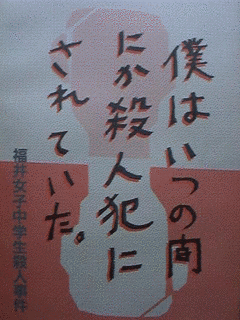 僕はいつの間
にか殺人犯に
されていた。
福井女子中学生殺人事件